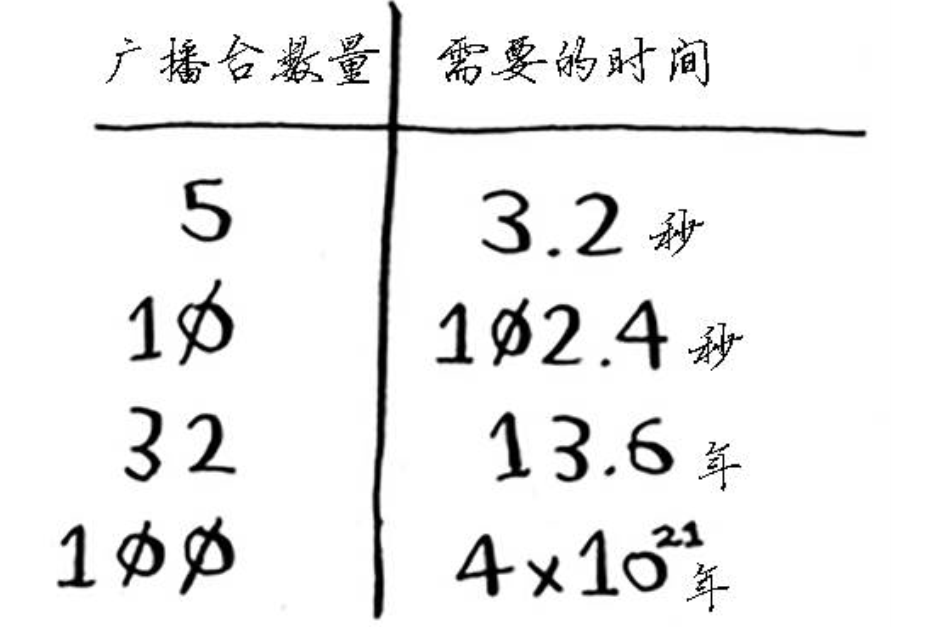 广播台数量 需要的时间
5 3.2秒
10 102.4秒
32 13.6年
100 4×10²¹年